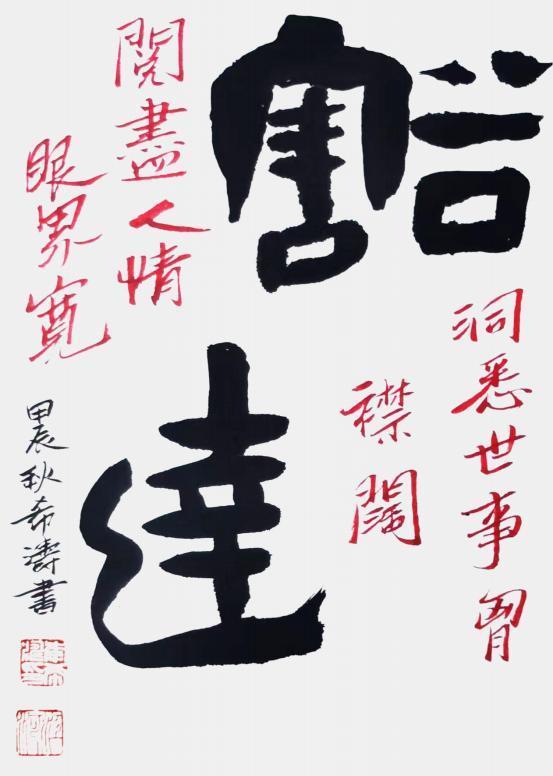 豁
達
洞悉世事胷
襟闊
閱盡人情
眼界寬
甲辰秋希濤書